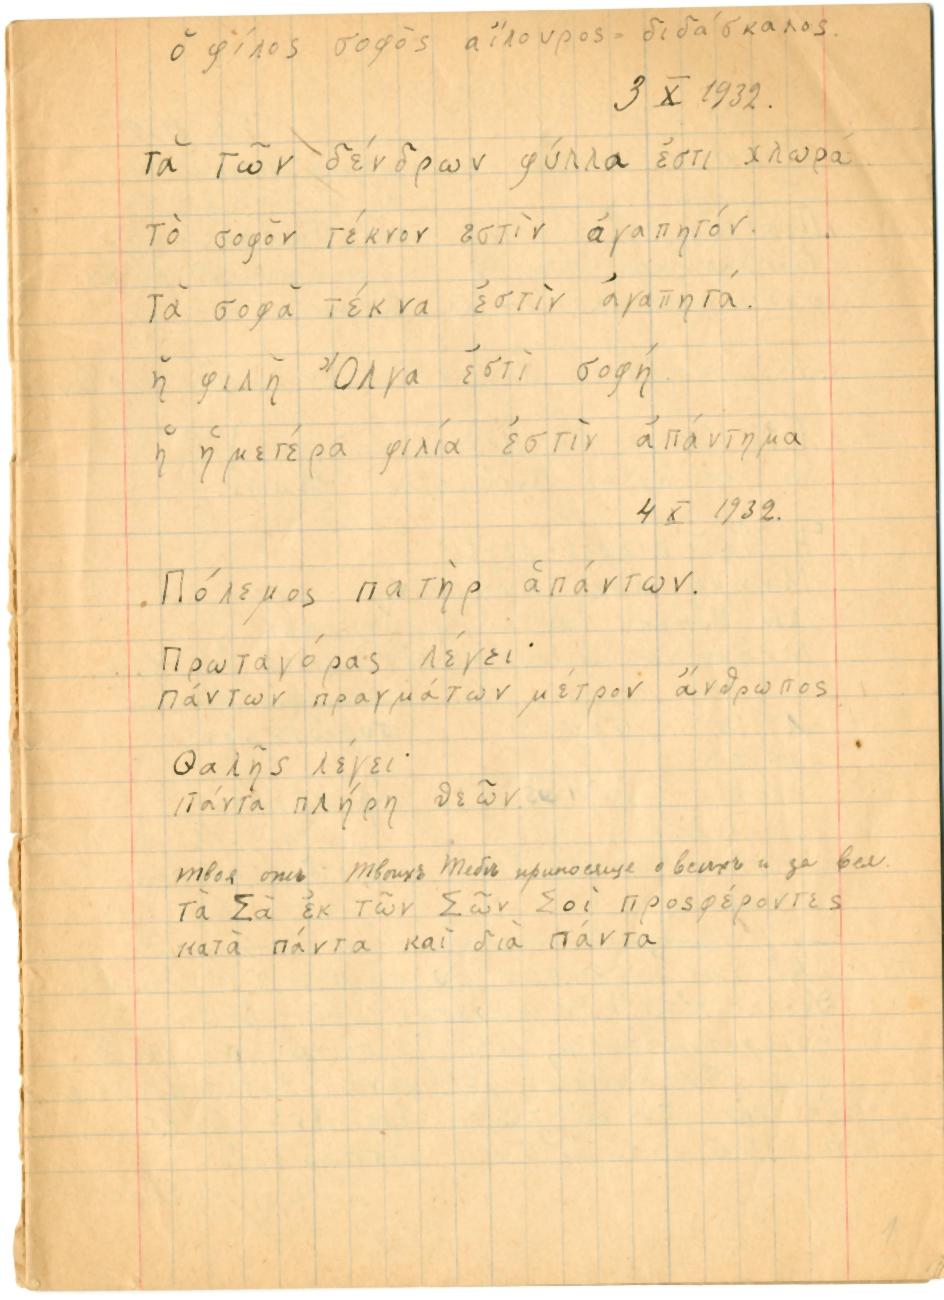 ὁ φίλος σοφὸς αἴλουρος - διδάσκαλος.
3 X 1932.
τὰ τῶν δένδρων φύλλα ἐστι χλωρά
τὸ σοφὸν τέκνον εστὶν ἀγαπητόν.
τὰ σοφὰ τέκνα ἐστὶν ἀγαπητά.
ἡ φιλὴ Ὄλγα ἐστὶ σοφή.
ἡ ἡμετέρα φιλία ἐστὶν ἀπάντημα
4 X 1932.
Πόλεμος πατὴρ ἁπάντων.
Πρωταγόρας λέγει·
πάντων πραγμάτων μέτρον ἄνθρωπος
Θαλῆς λέγει·
πάντα πλήρη θεῶν
Твоя отъ Твоихъ Тебѣ приносяще о всѣхъ и за вся.
τὰ Σὰ ἐκ τῶν Σῶν Σοὶ προςφέροντες
κατὰ πάντα καὶ διὰ πάντα
1